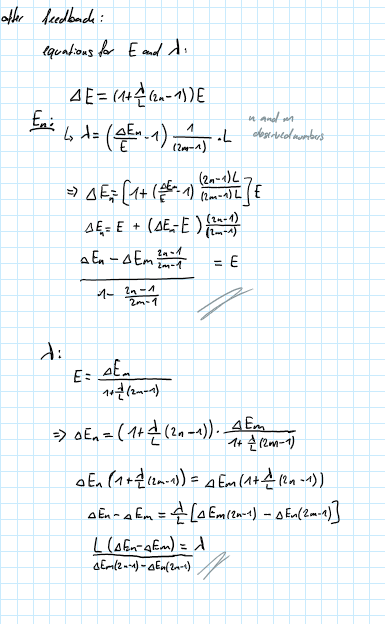 after feedback:
equations for E and λ:
ΔE = (1+λ/L (2n-1))E
En:
↳ λ = (ΔEm/E - 1) 1/(2m-1) · L
n and m
observed numbers
⇒ ΔEn = [1 + (ΔEm/E - 1) (2n-1)L/(2m-1)L] E
ΔEn = E + (ΔEm - E) (2n-1)/(2m-1)
(ΔEn - ΔEm 2n-1/2m-1) / (1 - 2n-1/2m-1) = E
λ:
E = ΔEm / (1+λ/L (2m-1))
⇒ ΔEn = (1+λ/L (2n-1)) · ΔEm / (1+λ/L (2m-1))
ΔEn (1+λ/L (2m-1)) = ΔEm (1+λ/L (2n-1))
ΔEn - ΔEm = λ/L [ΔEm(2n-1) - ΔEn(2m-1)]
L (ΔEn - ΔEm) / (ΔEm(2n-1) - ΔEn(2m-1)) = λ